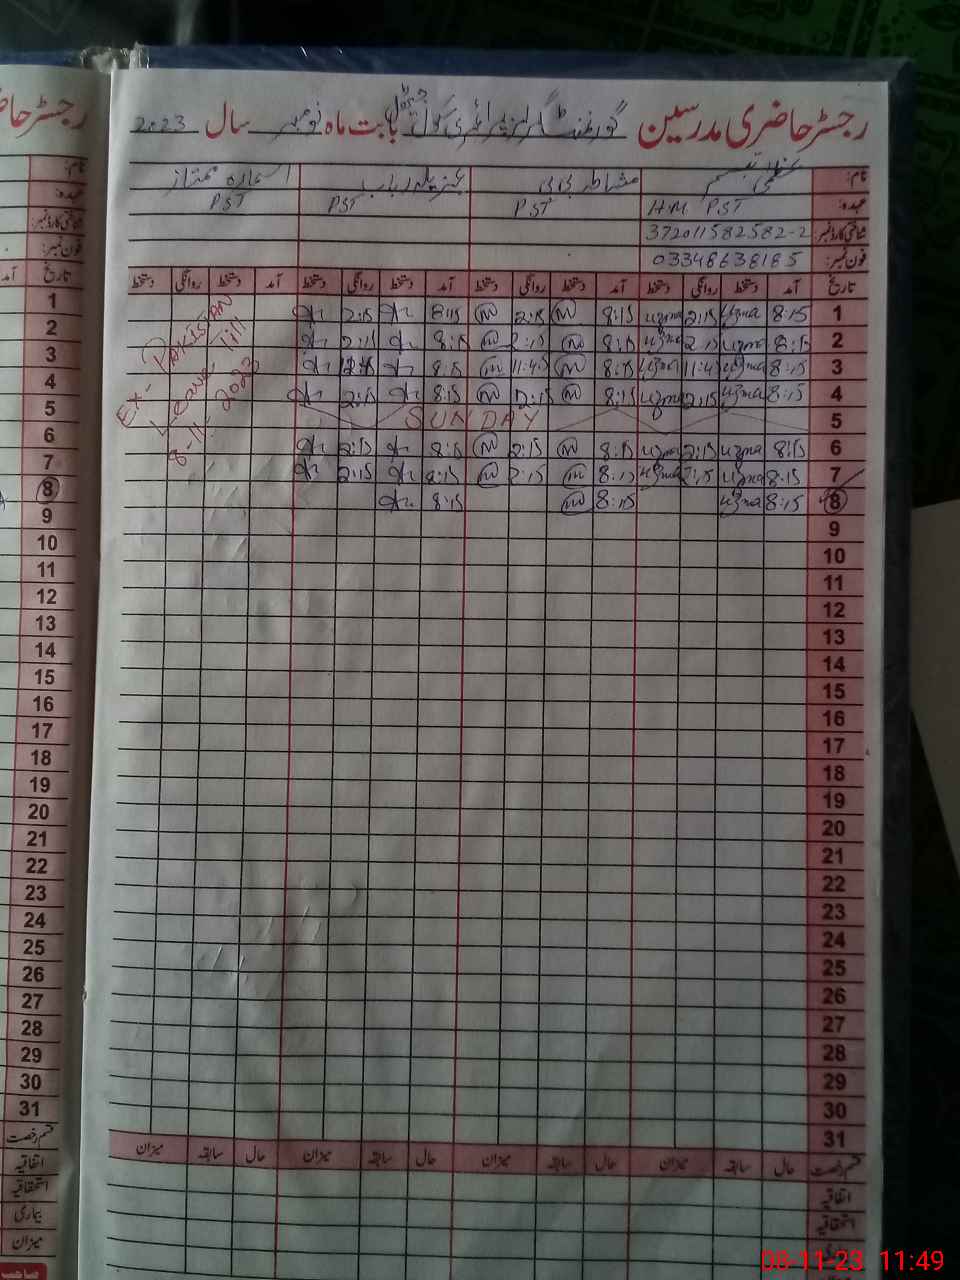 رجسٹر حاضری مدرسین گورنمنٹ گرلز پرائمری سکول بابت ماہ نومبر سال 2023
نام: عظمیٰ تبسم مشاطہ بی بی رباب اسمارہ ممتاز
عہدہ: H.M PST PST PST PST
شناختی کارڈ نمبر: 372011582582-2
فون نمبر: 03348638185
تاریخ آمد دستخط روانگی دستخط آمد دستخط روانگی دستخط آمد دستخط روانگی دستخط آمد دستخط روانگی دستخط
1 8:15 uzma 2:15 uzma 8:15 2:15 8:15 2:15
2 8:15 uzma 2:15 uzma 8:15 2:15 8:15 2:15
3 8:15 uzma 11:45 uzma 8:15 11:45 8:15
4 8:15 uzma 2:15 uzma 8:15 8:15 2:15
5 SUNDAY
6 8:15 uzma 2:15 uzma 8:15 2:15 8:15 2:15
7 8:15 uzma 2:15 uzma 8:15 2:15 8:15 2:15
8 8:15 uzma 8:15 8:15
EX-PAKISTAN
Leave Till
8-11-2023
9
10
11
12
13
14
15
16
17
18
19
20
21
22
23
24
25
26
27
28
29
30
31
قسم رخصت حال سابقہ میزان حال سابقہ میزان حال سابقہ میزان حال سابقہ میزان
اتفاقیہ
استحقاقیہ
رجسٹر حاض
نام:
عہدہ:
شناختی کارڈ نمبر:
فون نمبر:
تاریخ آمد
1
2
3
4
5
6
7
8
9
10
11
12
13
14
15
16
17
18
19
20
21
22
23
24
25
26
27
28
29
30
31
قسم رخصت
اتفاقیہ
استحقاقیہ
بیماری
میزان
صاحب
08-11-23 11:49